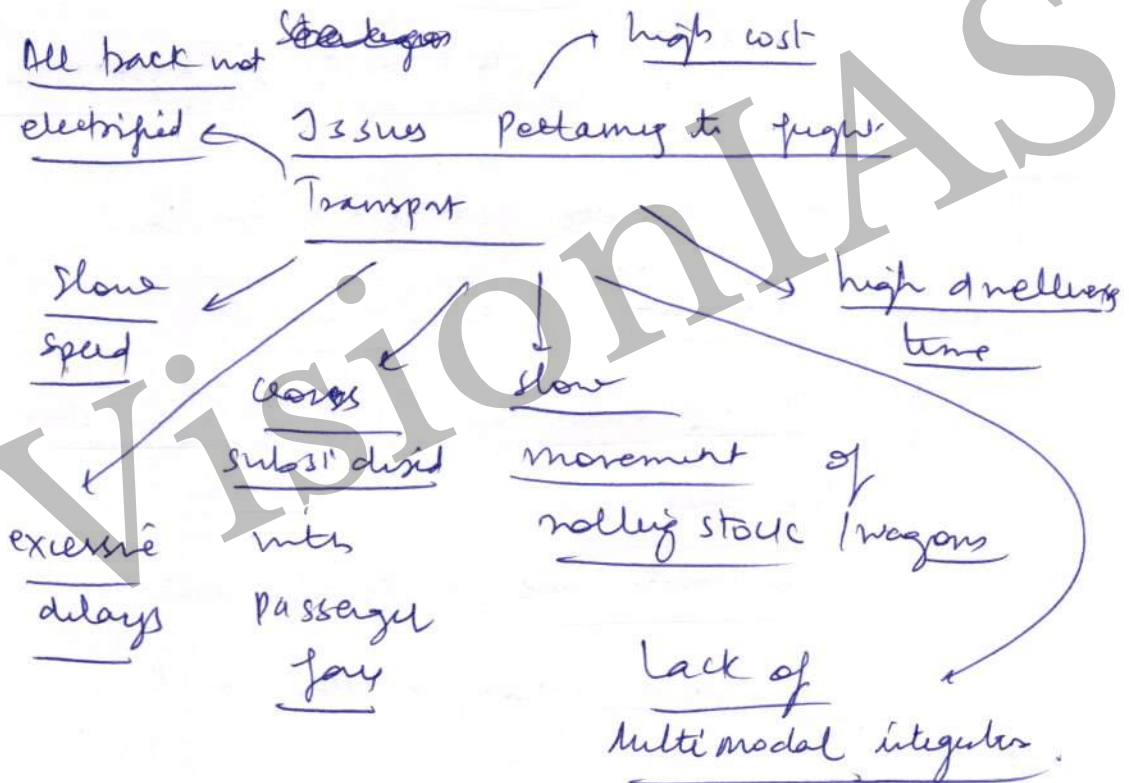 All track not
electrified
high cost
Issues Pertaining to freight
Transport
slow
speed
high dwelling
time
cross
subsidised
with
passenger
fare
slow
movement of
rolling stock / wagons
excessive
delays
Lack of
Multimodal integration.
VisionIAS